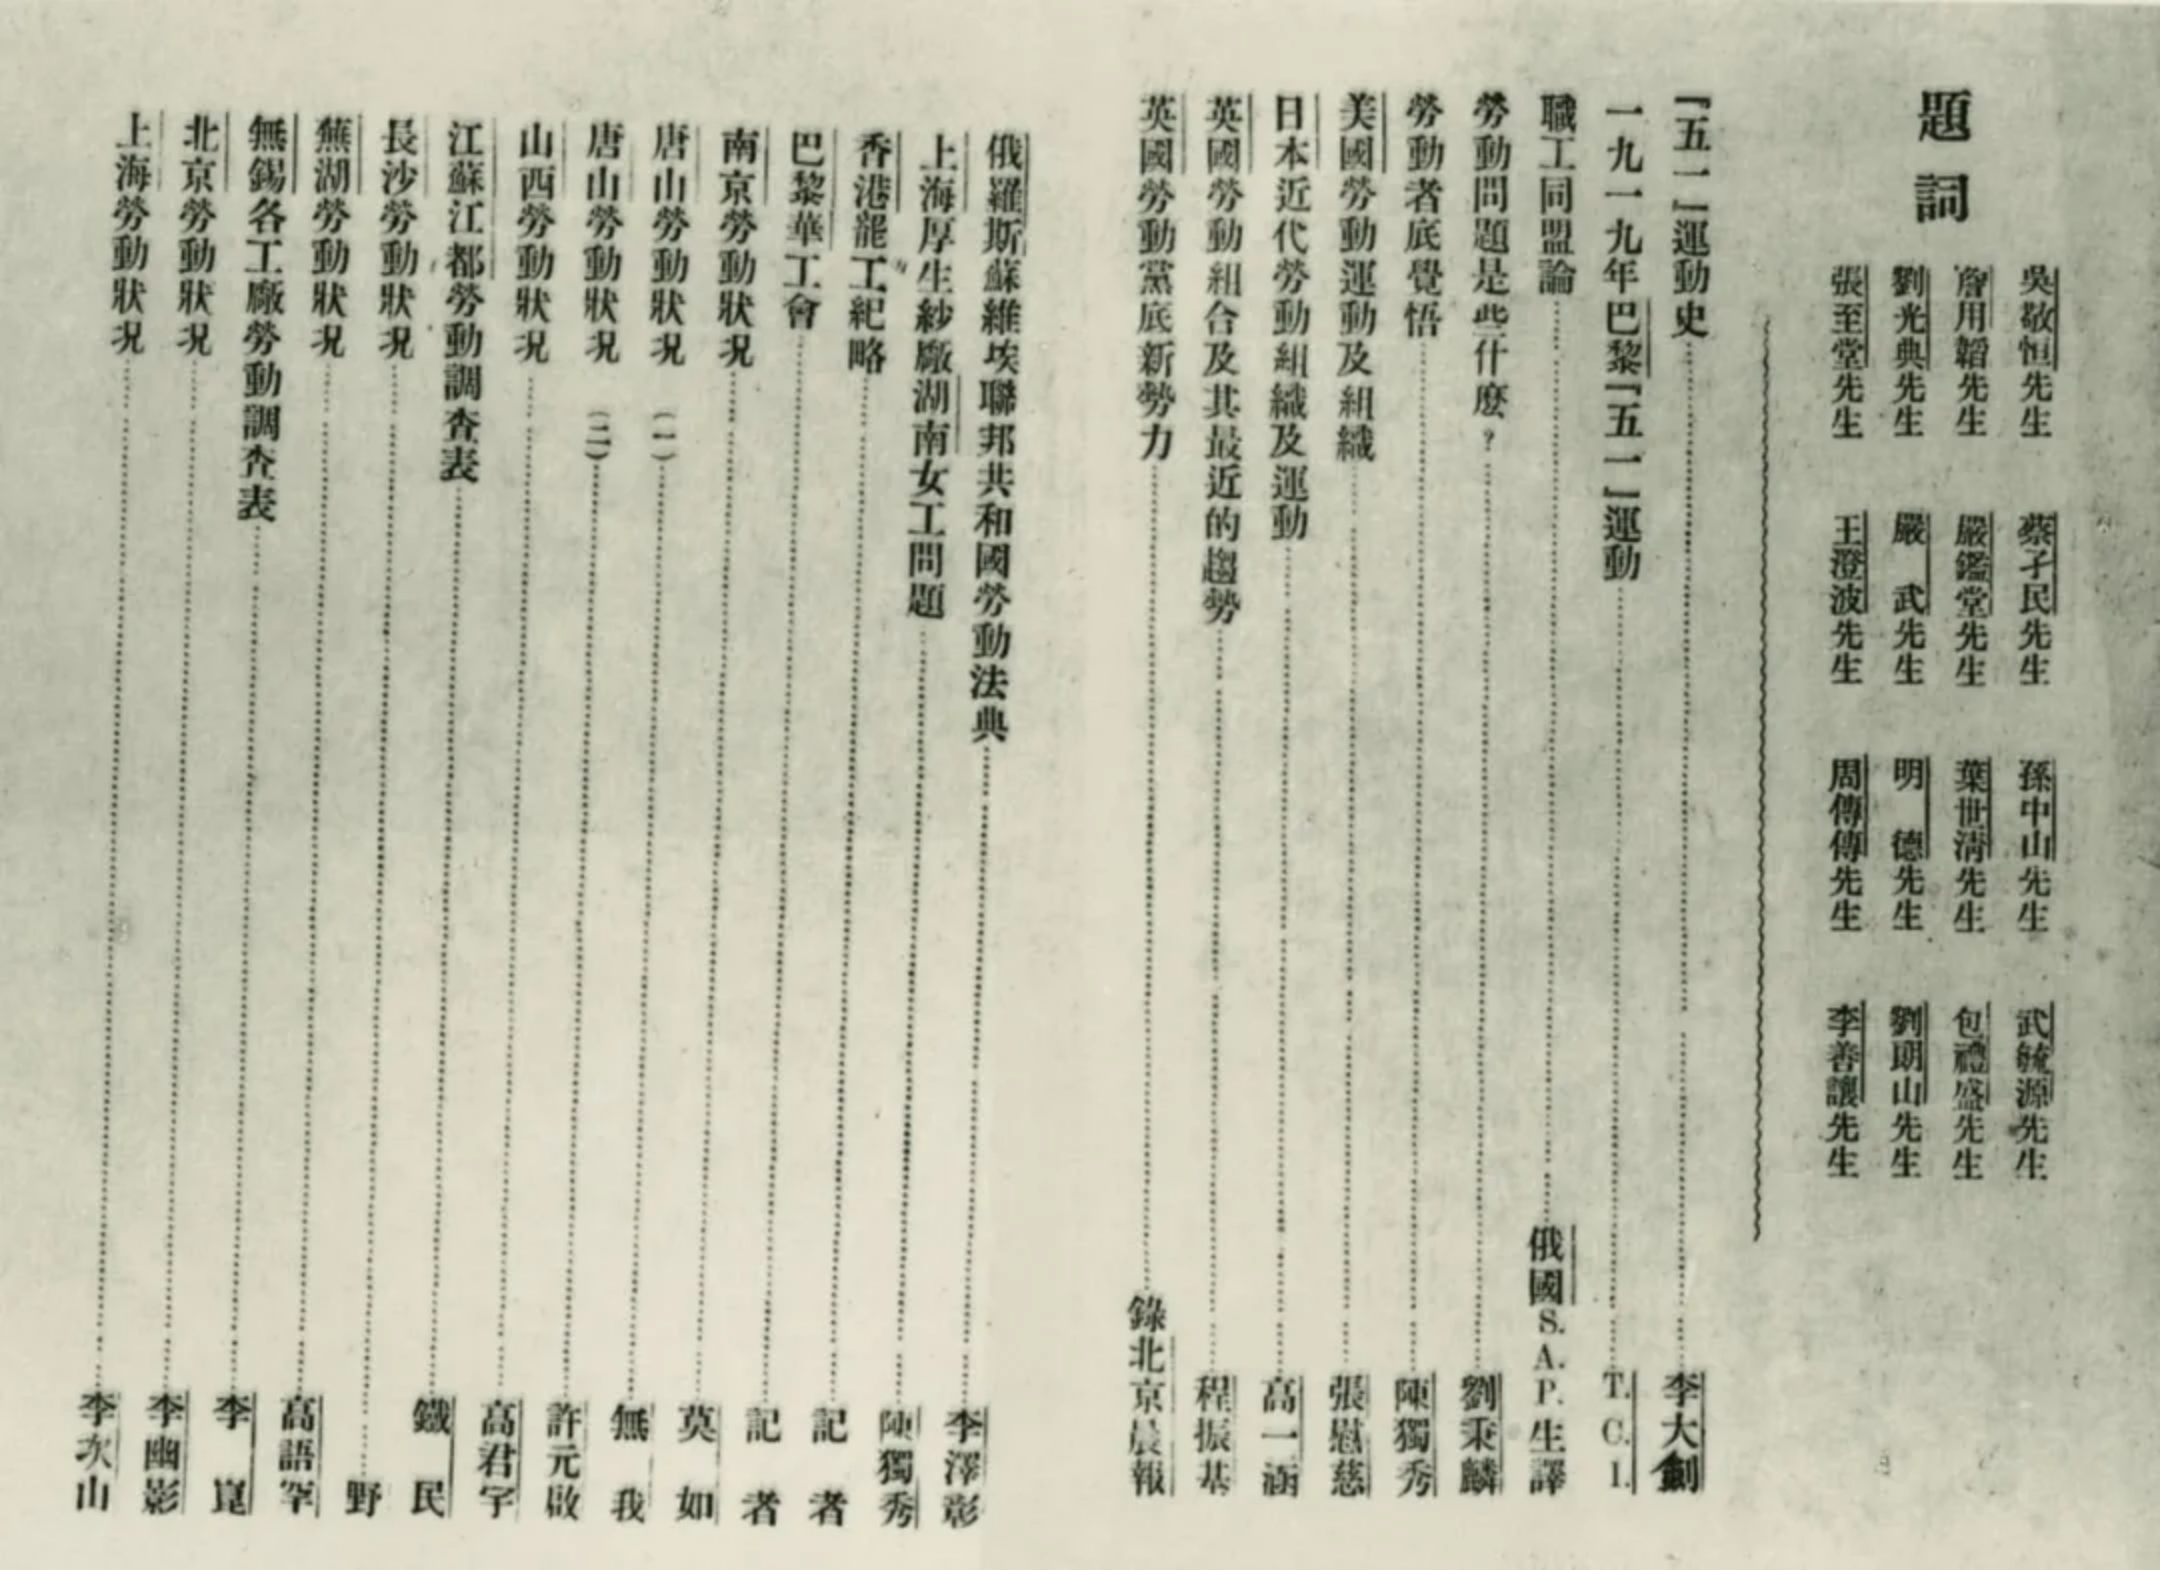 題詞
吳敬恒先生 蔡孑民先生 孫中山先生 武毓源先生
詹用韜先生 嚴鑑堂先生 葉世清先生 包禮盛先生
劉光典先生 嚴 武先生 明 德先生 劉朗山先生
張至堂先生 王澄波先生 周傳傳先生 李善讓先生
「五一」運動史 李大釗
一九一九年巴黎「五一」運動 T. C. I.
職工同盟論 俄國 S. A. P. 生譯
勞動問題是些什麼? 劉秉麟
勞動者底覺悟 陳獨秀
美國勞動運動及組織 張慰慈
日本近代勞動組織及運動 高一涵
英國勞動組合及其最近的趨勢 程振基
英國勞動黨底新勢力 錄北京晨報
俄羅斯蘇維埃聯邦共和國勞動法典 李澤彰
上海厚生紗廠湖南女工問題 陳獨秀
香港罷工紀略 記 者
巴黎華工會 記 者
南京勞動狀況 莫 如
唐山勞動狀況 (一) 無 我
唐山勞動狀況 (二) 許元啟
山西勞動狀況 高君宇
江蘇江都勞動調查表 鐵 民
長沙勞動狀況 野
蕪湖勞動狀況 高語罕
無錫各工廠勞動調查表 李 崑
北京勞動狀況 李幽影
上海勞動狀況 李次山